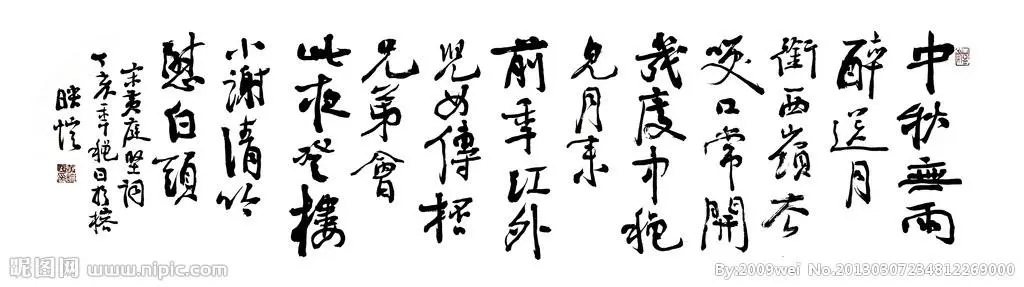 中秋無雨
醉送月
銜西嶺去
咲口常開
幾度中穐
見月来
前年江外
児女傳桮
兄弟會
此夜登樓
小謝清吟
慰白頭
宋黄庭堅詞
丁亥年穐日於榕
昵图网 www.nipic.com
By:2009wei No.20130307234812269000